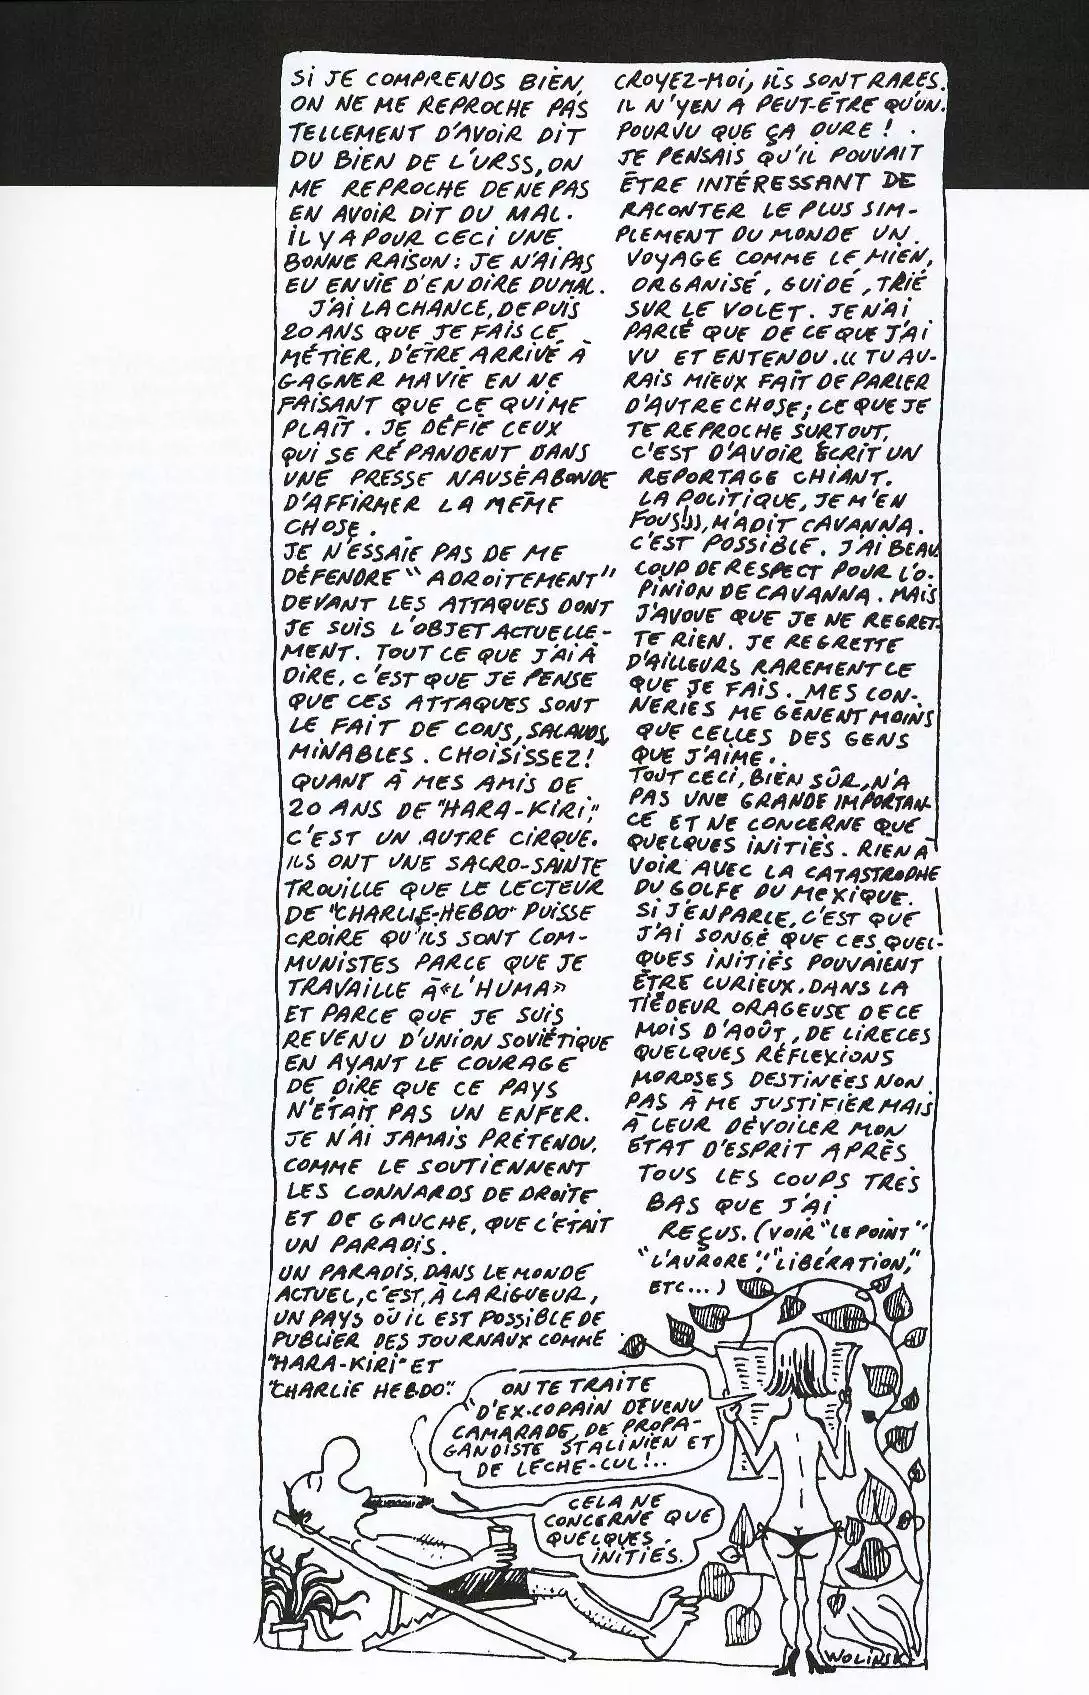 SI JE COMPRENDS BIEN,
ON NE ME REPROCHE PAS
TELLEMENT D'AVOIR DIT
DU BIEN DE L'URSS, ON
ME REPROCHE DE NE PAS
EN AVOIR DIT DU MAL.
IL Y A POUR CECI UNE
BONNE RAISON : JE N'AI PAS
EU ENVIE D'EN DIRE DU MAL.
J'AI LA CHANCE, DEPUIS
20 ANS QUE JE FAIS CE
MÉTIER, D'ÊTRE ARRIVÉ À
GAGNER MA VIE EN NE
FAISANT QUE CE QUI ME
PLAÎT. JE DÉFIE CEUX
QUI SE RÉPANDENT DANS
UNE PRESSE NAUSÉABONDE
D'AFFIRMER LA MÊME
CHOSE.
JE N'ESSAIE PAS DE ME
DÉFENDRE "ADROITEMENT"
DEVANT LES ATTAQUES DONT
JE SUIS L'OBJET ACTUELLE-
MENT. TOUT CE QUE J'AI À
DIRE, C'EST QUE JE PENSE
QUE CES ATTAQUES SONT
LE FAIT DE CONS, SALAUDS,
MINABLES. CHOISISSEZ !
QUANT À MES AMIS DE
20 ANS DE "HARA-KIRI",
C'EST UN AUTRE CIRQUE.
ILS ONT UNE SACRO-SAINTE
TROUILLE QUE LE LECTEUR
DE "CHARLIE-HEBDO" PUISSE
CROIRE QU'ILS SONT COM-
MUNISTES PARCE QUE JE
TRAVAILLE À «L'HUMA»
ET PARCE QUE JE SUIS
REVENU D'UNION SOVIÉTIQUE
EN AYANT LE COURAGE
DE DIRE QUE CE PAYS
N'ÉTAIT PAS UN ENFER.
JE N'AI JAMAIS PRÉTENDU,
COMME LE SOUTIENNENT
LES CONNARDS DE DROITE
ET DE GAUCHE, QUE C'ÉTAIT
UN PARADIS.
UN PARADIS, DANS LE MONDE
ACTUEL, C'EST, À LA RIGUEUR,
UN PAYS OÙ IL EST POSSIBLE DE
PUBLIER DES JOURNAUX COMME
"HARA-KIRI" ET
"CHARLIE HEBDO".
CROYEZ-MOI, ILS SONT RARES.
IL N'Y EN A PEUT-ÊTRE QU'UN.
POURVU QUE ÇA DURE !
JE PENSAIS QU'IL POUVAIT
ÊTRE INTÉRESSANT DE
RACONTER LE PLUS SIM-
PLEMENT DU MONDE UN
VOYAGE COMME LE MIEN,
ORGANISÉ, GUIDÉ, TRIÉ
SUR LE VOLET. JE N'AI
PARLÉ QUE DE CE QUE J'AI
VU ET ENTENDU. (( TU AU-
RAIS MIEUX FAIT DE PARLER
D'AUTRE CHOSE ; CE QUE JE
TE REPROCHE SURTOUT,
C'EST D'AVOIR ÉCRIT UN
REPORTAGE CHIANT.
LA POLITIQUE, JE M'EN
FOUS !)), M'A DIT CAVANNA.
C'EST POSSIBLE. J'AI BEAU
COUP DE RESPECT POUR L'O-
PINION DE CAVANNA. MAIS
J'AVOUE QUE JE NE REGRET-
TE RIEN. JE REGRETTE
D'AILLEURS RAREMENT CE
QUE JE FAIS. MES CON-
NERIES ME GÊNENT MOINS
QUE CELLES DES GENS
QUE J'AIME..
TOUT CECI, BIEN SÛR, N'A
PAS UNE GRANDE IMPORTAN-
CE ET NE CONCERNE QUE
QUELQUES INITIÉS. RIEN À
VOIR AVEC LA CATASTROPHE
DU GOLFE DU MEXIQUE.
SI J'EN PARLE, C'EST QUE
J'AI SONGÉ QUE CES QUEL-
QUES INITIÉS POUVAIENT
ÊTRE CURIEUX, DANS LA
TIÉDEUR ORAGEUSE DE CE
MOIS D'AOÛT, DE LIRE CES
QUELQUES RÉFLEXIONS
MOROSES DESTINÉES NON
PAS À ME JUSTIFIER MAIS
À LEUR DÉVOILER MON
ÉTAT D'ESPRIT APRÈS
TOUS LES COUPS TRÈS
BAS QUE J'AI
REÇUS. (VOIR "LE POINT"
"L'AURORE", "LIBÉRATION",
ETC...)
ON TE TRAITE
"D'EX-COPAIN DEVENU
CAMARADE, DE PROPA-
GANDISTE STALINIEN ET
DE LÈCHE-CUL !..
CELA NE
CONCERNE QUE
QUELQUES
INITIÉS.
WOLINSKI